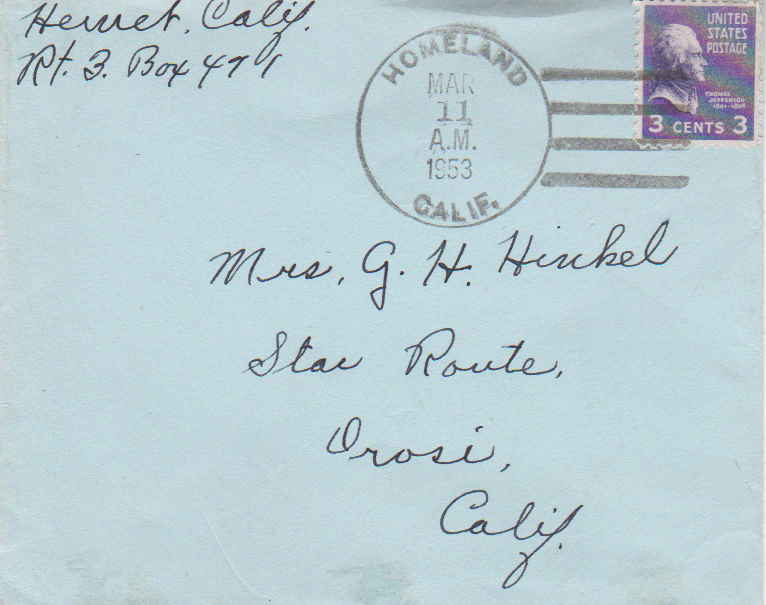 Hemet, Calif.
Rt. 3. Box 471
HOMELAND
MAR
11
A.M.
1953
CALIF.
UNITED
STATES
POSTAGE
THOMAS
JEFFERSON
1801-1809
3 CENTS 3
Mrs. G. H. Hinkel
Star Route,
Orosi,
Calif.